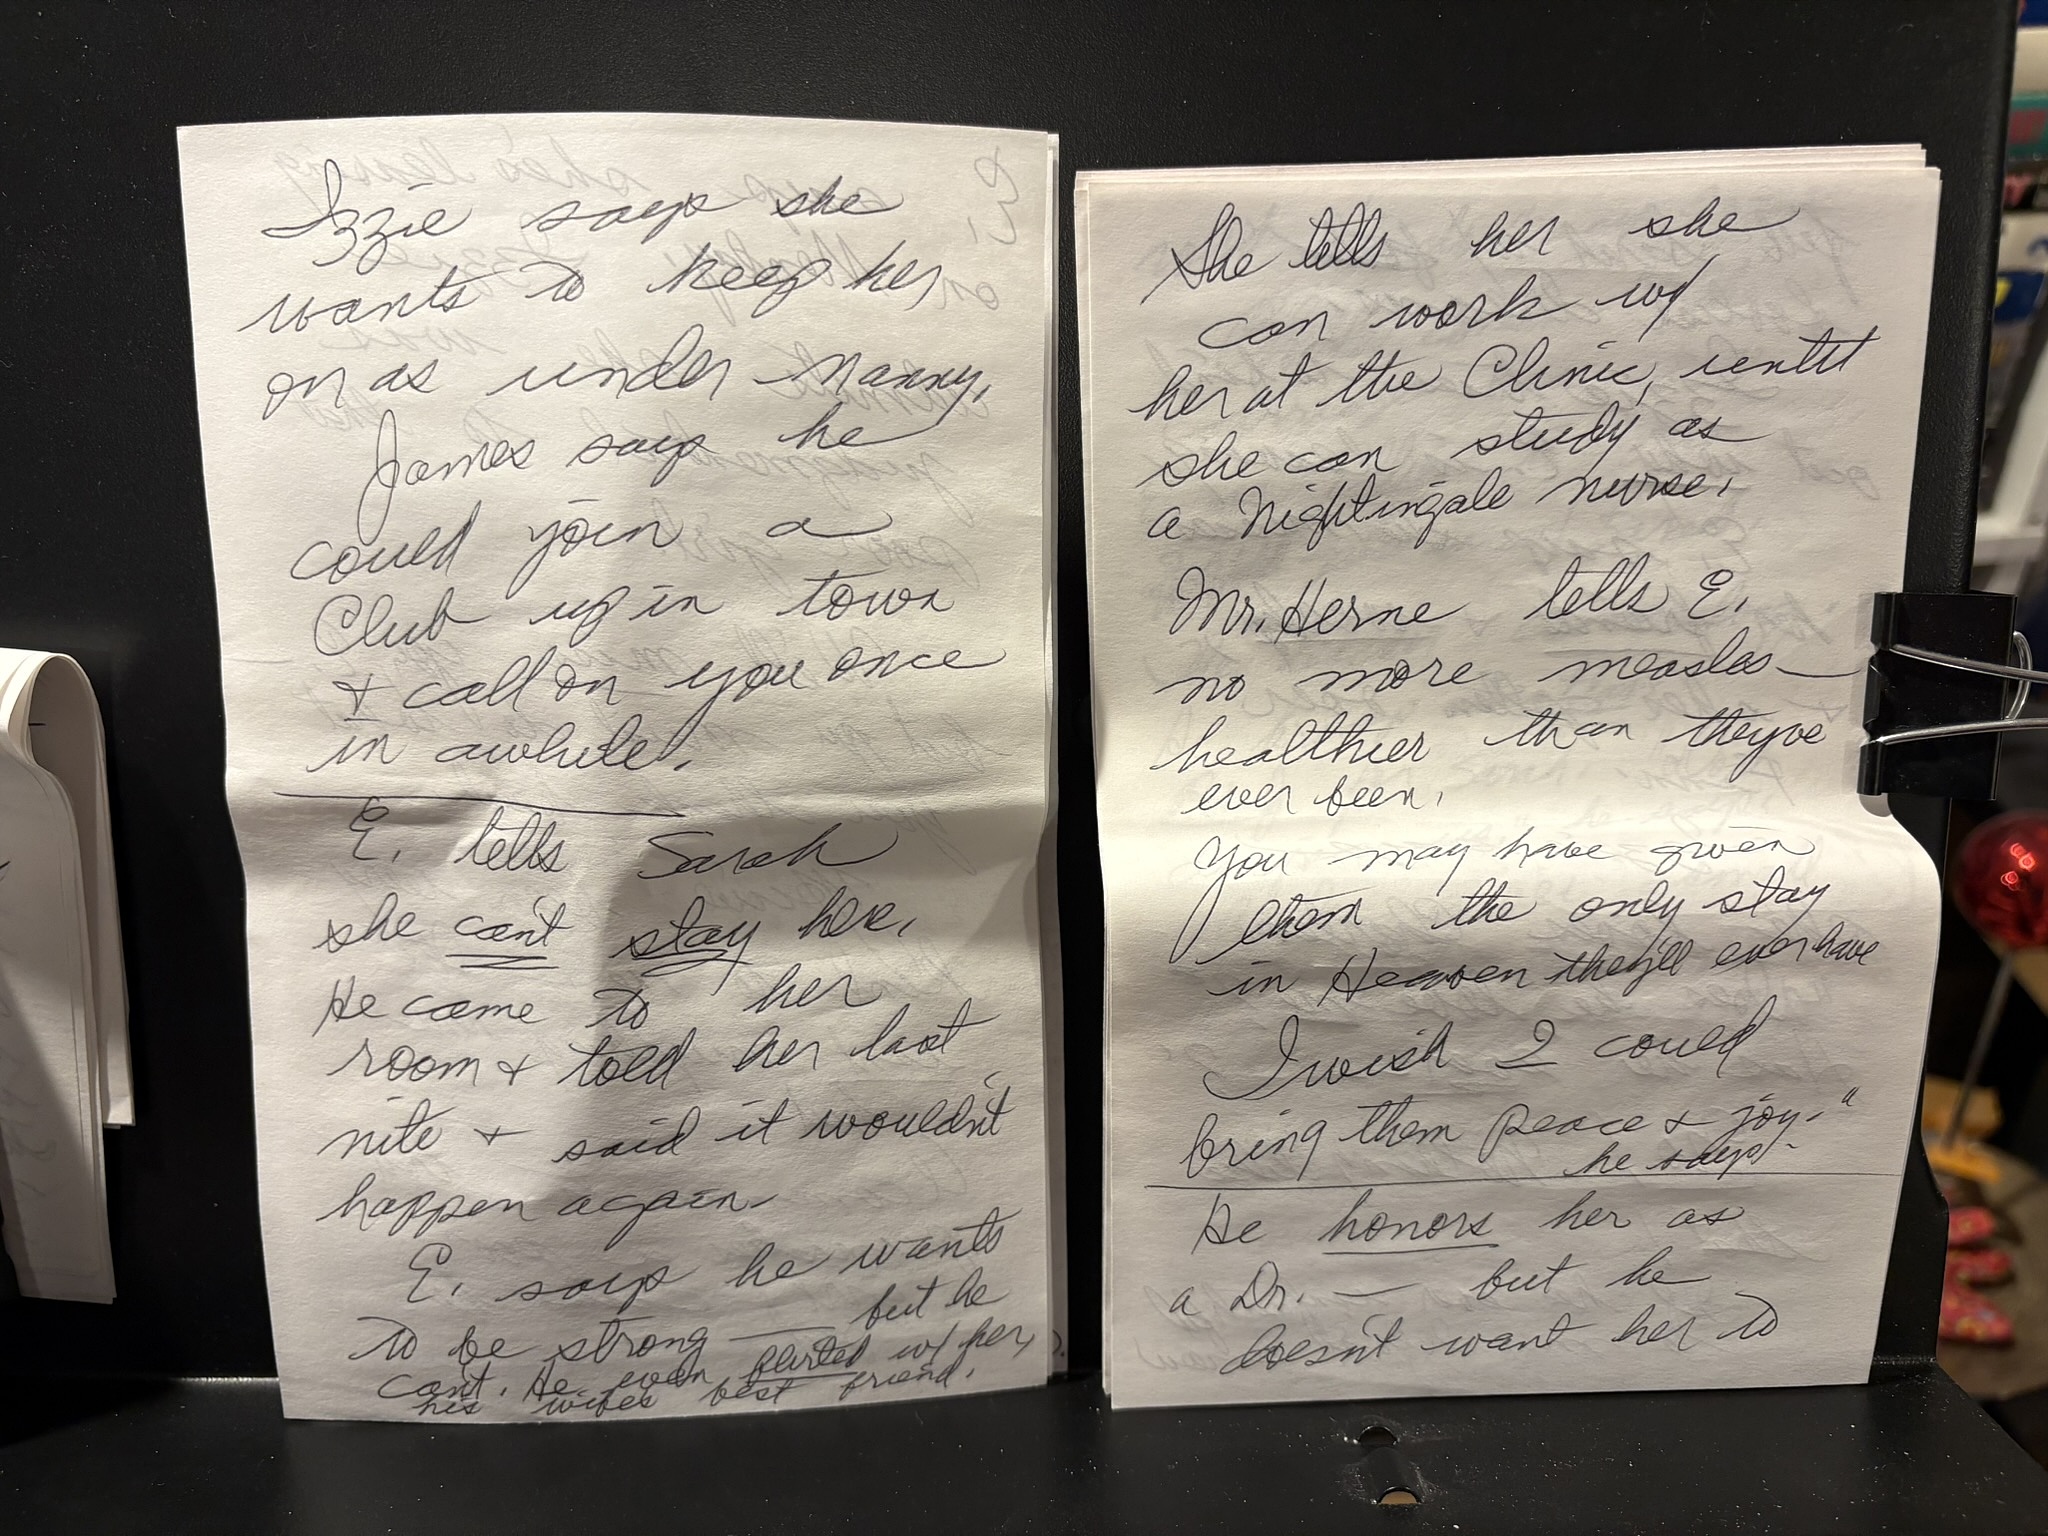 Izzie says she
wants to keep her
on as under Nanny.
James says he
could join a
Club up in town
& call on you once
in awhile.
E. tells Sarah
she can't stay here.
He came to her
room & told her last
nite & said it wouldn't
happen again.
E. says he wants
to be strong — but he
can't. He even flirted w/ her,
his wifes best friend.
She tells her she
can work w/
her at the Clinic, until
she can study as
a Nightingale nurse.
Mr. Herne tells E.
no more measles —
healthier than theyve
ever been.
You may have given
them the only stay
in Heaven they'll ever have
I wish I could
bring them peace & joy."
he says -
He honors her as
a Dr. — but he
doesn't want her to